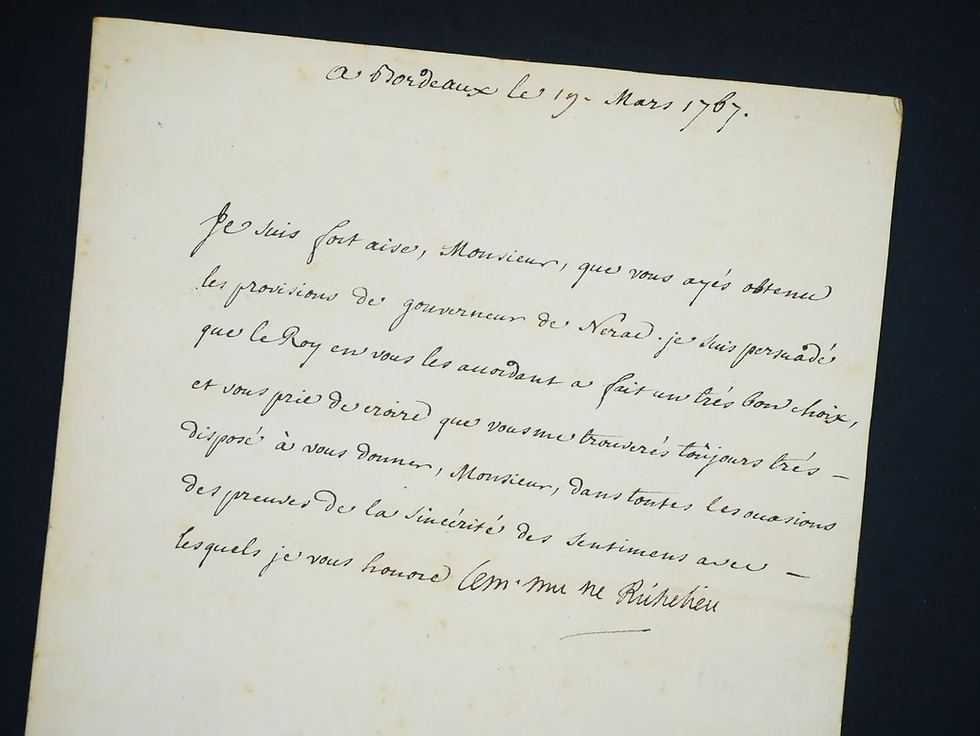 a Bordeaux le 19. Mars 1767.
Je suis fort aise, Monsieur, que vous ayés obtenu
les provisions de gouverneur de Nerac. je suis persuadé
que le Roy en vous les accordant a fait un trés bon choix,
et vous prie de croire que vous me trouverés toûjours trés —
disposé à vous donner, Monsieur, dans toutes les occasions
des preuves de la sincérité des sentimens avec —
lesquels je vous honore Richelieu